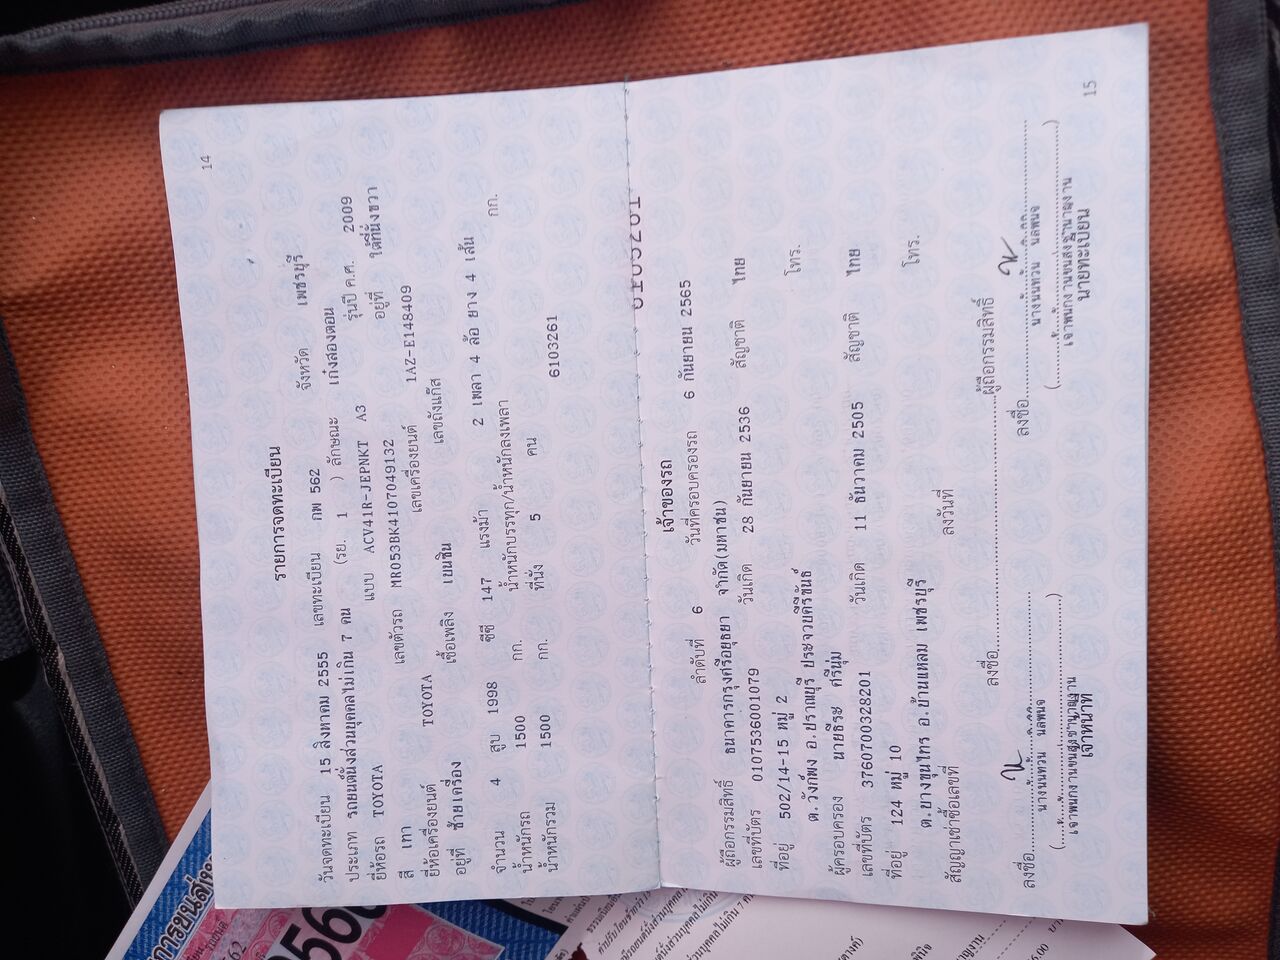 14
รายการจดทะเบียน
วันจดทะเบียน 15 สิงหาคม 2555 เลขทะเบียน กพ 562 จังหวัด เพชรบุรี
ประเภท รถยนต์นั่งส่วนบุคคลไม่เกิน 7 คน (รย. 1 ) ลักษณะ เก๋งสองตอน
ยี่ห้อรถ TOYOTA แบบ ACV41R-JEPNKT A3 รุ่นปี ค.ศ. 2009
สี เทา เลขตัวรถ MR053BK4107049132 อยู่ที่ ใต้ที่นั่งขวา
ยี่ห้อเครื่องยนต์ TOYOTA เลขเครื่องยนต์ 1AZ-E148409
อยู่ที่ ซ้ายเครื่อง เชื้อเพลิง เบนซิน เลขถังแก๊ส
จำนวน 4 สูบ 1998 ซีซี 147 แรงม้า 2 เพลา 4 ล้อ ยาง 4 เส้น
น้ำหนักรถ 1500 กก. น้ำหนักบรรทุก/น้ำหนักลงเพลา กก.
น้ำหนักรวม 1500 กก. ที่นั่ง 5 คน 6103261
เจ้าของรถ
ลำดับที่ 6 วันที่ครอบครองรถ 6 กันยายน 2565
ผู้ถือกรรมสิทธิ์ ธนาคารกรุงศรีอยุธยา จำกัด(มหาชน)
เลขที่บัตร 0107536001079 วันเกิด 28 กันยายน 2536 สัญชาติ ไทย
ที่อยู่ 502/14-15 หมู่ 2 โทร.
ต.วังก์พง อ.ปราณบุรี ประจวบคีรีขันธ์
ผู้ครอบครอง นายธีระ ศรีนุ่ม
เลขที่บัตร 3760700328201 วันเกิด 11 ธันวาคม 2505 สัญชาติ ไทย
ที่อยู่ 124 หมู่ 10 โทร.
ต.บางขุนไทร อ.บ้านแหลม เพชรบุรี
สัญญาเช่าซื้อเลขที่ ลงวันที่
ลงชื่อ ผู้ถือกรรมสิทธิ์
ลงชื่อ ลงชื่อ
นางนนทวน นลพนจ นางนนทวน นลพนจ
เจ้าพนักงานขนส่งชำนาญงาน เจ้าพนักงานขนส่งชำนาญงาน
เจ้าหน้าที่ นายทะเบียน
15